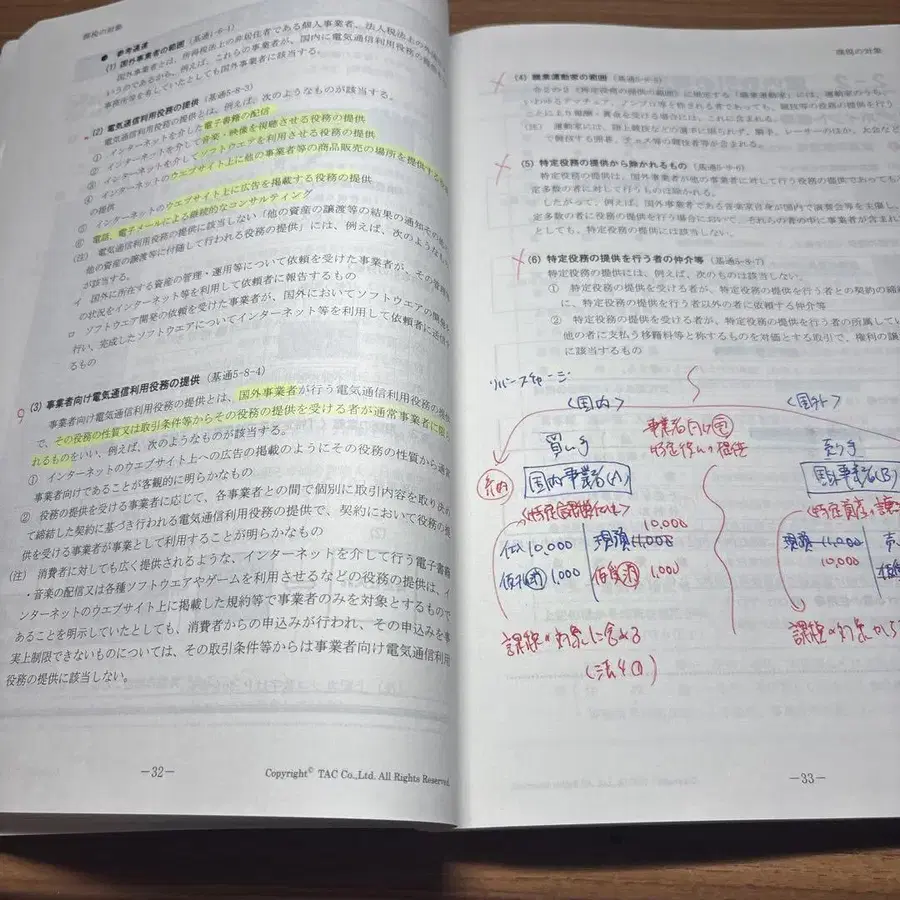 課税の対象
● 参考通達
(1) 国外事業者の範囲（基通1-6-1）
国外事業者とは、所得税法上の非居住者である個人事業者、法人税法上の外国法
いうのであるから、例えば、これらの事業者が、国内に電気通信利用役務の提供
事務所等を有していたとしても国外事業者に該当する。
(2) 電気通信利用役務の提供（基通5-8-3）
電気通信利用役務の提供とは、例えば、次のようなものが該当する。
① インターネットを介した電子書籍の配信
② インターネットを介して音楽・映像を視聴させる役務の提供
③ インターネットを介してソフトウエアを利用させる役務の提供
④ インターネットのウエブサイト上に他の事業者等の商品販売の場所を提供する
の提供
⑤ インターネットのウエブサイト上に広告を掲載する役務の提供
⑥ 電話、電子メールによる継続的なコンサルティング
(注) 電気通信利用役務の提供に該当しない「他の資産の譲渡等の結果の通知その他の
他の資産の譲渡等に付随して行われる役務の提供」には、例えば、次のようなもの
が該当する。
イ 国外に所在する資産の管理・運用等について依頼を受けた事業者が、その管理等
の状況をインターネット等を利用して依頼者に報告するもの
ロ ソフトウエア開発の依頼を受けた事業者が、国外においてソフトウエアの開発を
行い、完成したソフトウエアについてインターネット等を利用して依頼者に送信す
るもの
(3) 事業者向け電気通信利用役務の提供（基通5-8-4）
事業者向け電気通信利用役務の提供とは、国外事業者が行う電気通信利用役務の提供
で、その役務の性質又は取引条件等からその役務の提供を受ける者が通常事業者に限ら
れるものをいい、例えば、次のようなものが該当する。
① インターネットのウエブサイト上への広告の掲載のようにその役務の性質から通常
事業者向けであることが客観的に明らかなもの
② 役務の提供を受ける事業者に応じて、各事業者との間で個別に取引内容を取り決め
て締結した契約に基づき行われる電気通信利用役務の提供で、契約において役務の提
供を受ける事業者が事業として利用することが明らかなもの
(注) 消費者に対しても広く提供されるような、インターネットを介して行う電子書籍
・音楽の配信又は各種ソフトウエアやゲームを利用させるなどの役務の提供は、イ
ンターネットのウエブサイト上に掲載した規約等で事業者のみを対象とするもので
あることを明示していたとしても、消費者からの申込みが行われ、その申込みを事
実上制限できないものについては、その取引条件等からは事業者向け電気通信利用
役務の提供に該当しない。
－32－
Copyright© TAC Co.,Ltd. All Rights Reserved.
課税の対象
(4) 職業運動家の範囲（基通5-8-5）
令2の2《特定役務の提供の範囲》に規定する「職業運動家」には、運動家のうち、
いわゆるアマチュア、ノンプロ等と称される者であっても、競技等の役務の提供を行う
ことにより報酬・賞金を受ける場合には、これに含まれる。
(注) 運動家には、陸上競技などの選手に限られず、騎手、レーサーのほか、大会など
で競技する囲碁、チェス等の競技者等が含まれる。
(5) 特定役務の提供から除かれるもの（基通5-8-6）
特定役務の提供は、国外事業者が他の事業者に対して行う役務の提供であっても不
定多数の者に対して行うものは除かれる。
したがって、例えば、国外事業者である音楽家自身が国内で演奏会等を主催し、
定多数の者に役務の提供を行う場合において、それらの者の中に事業者が含まれて
としても、特定役務の提供には該当しない。
(6) 特定役務の提供を行う者の仲介等（基通5-8-7）
特定役務の提供には、例えば、次のものは該当しない。
① 特定役務の提供を受ける者が、特定役務の提供を行う者との契約の締結
に、特定役務の提供を行う者以外の者に依頼する仲介等
② 特定役務の提供を受ける者が、特定役務の提供を行う者の所属してい
他の者に支払う移籍料等と称するものを対価とする取引で、権利の譲
に該当するもの
リバースチャージ
〈国内〉 〈国外〉
買い手 事業者向け電 売り手
特定役務の提供
国内事業者(A) 国外事業者(B)
〈特定課税仕入れ〉 〈特定資産の譲
10,000
仕 10,000 現預 11,000 現預 11,000 売
10,000
仮払消 1,000 仮受消 1,000
課税の対象に含める 課税の対象から
(法4①)
－33－